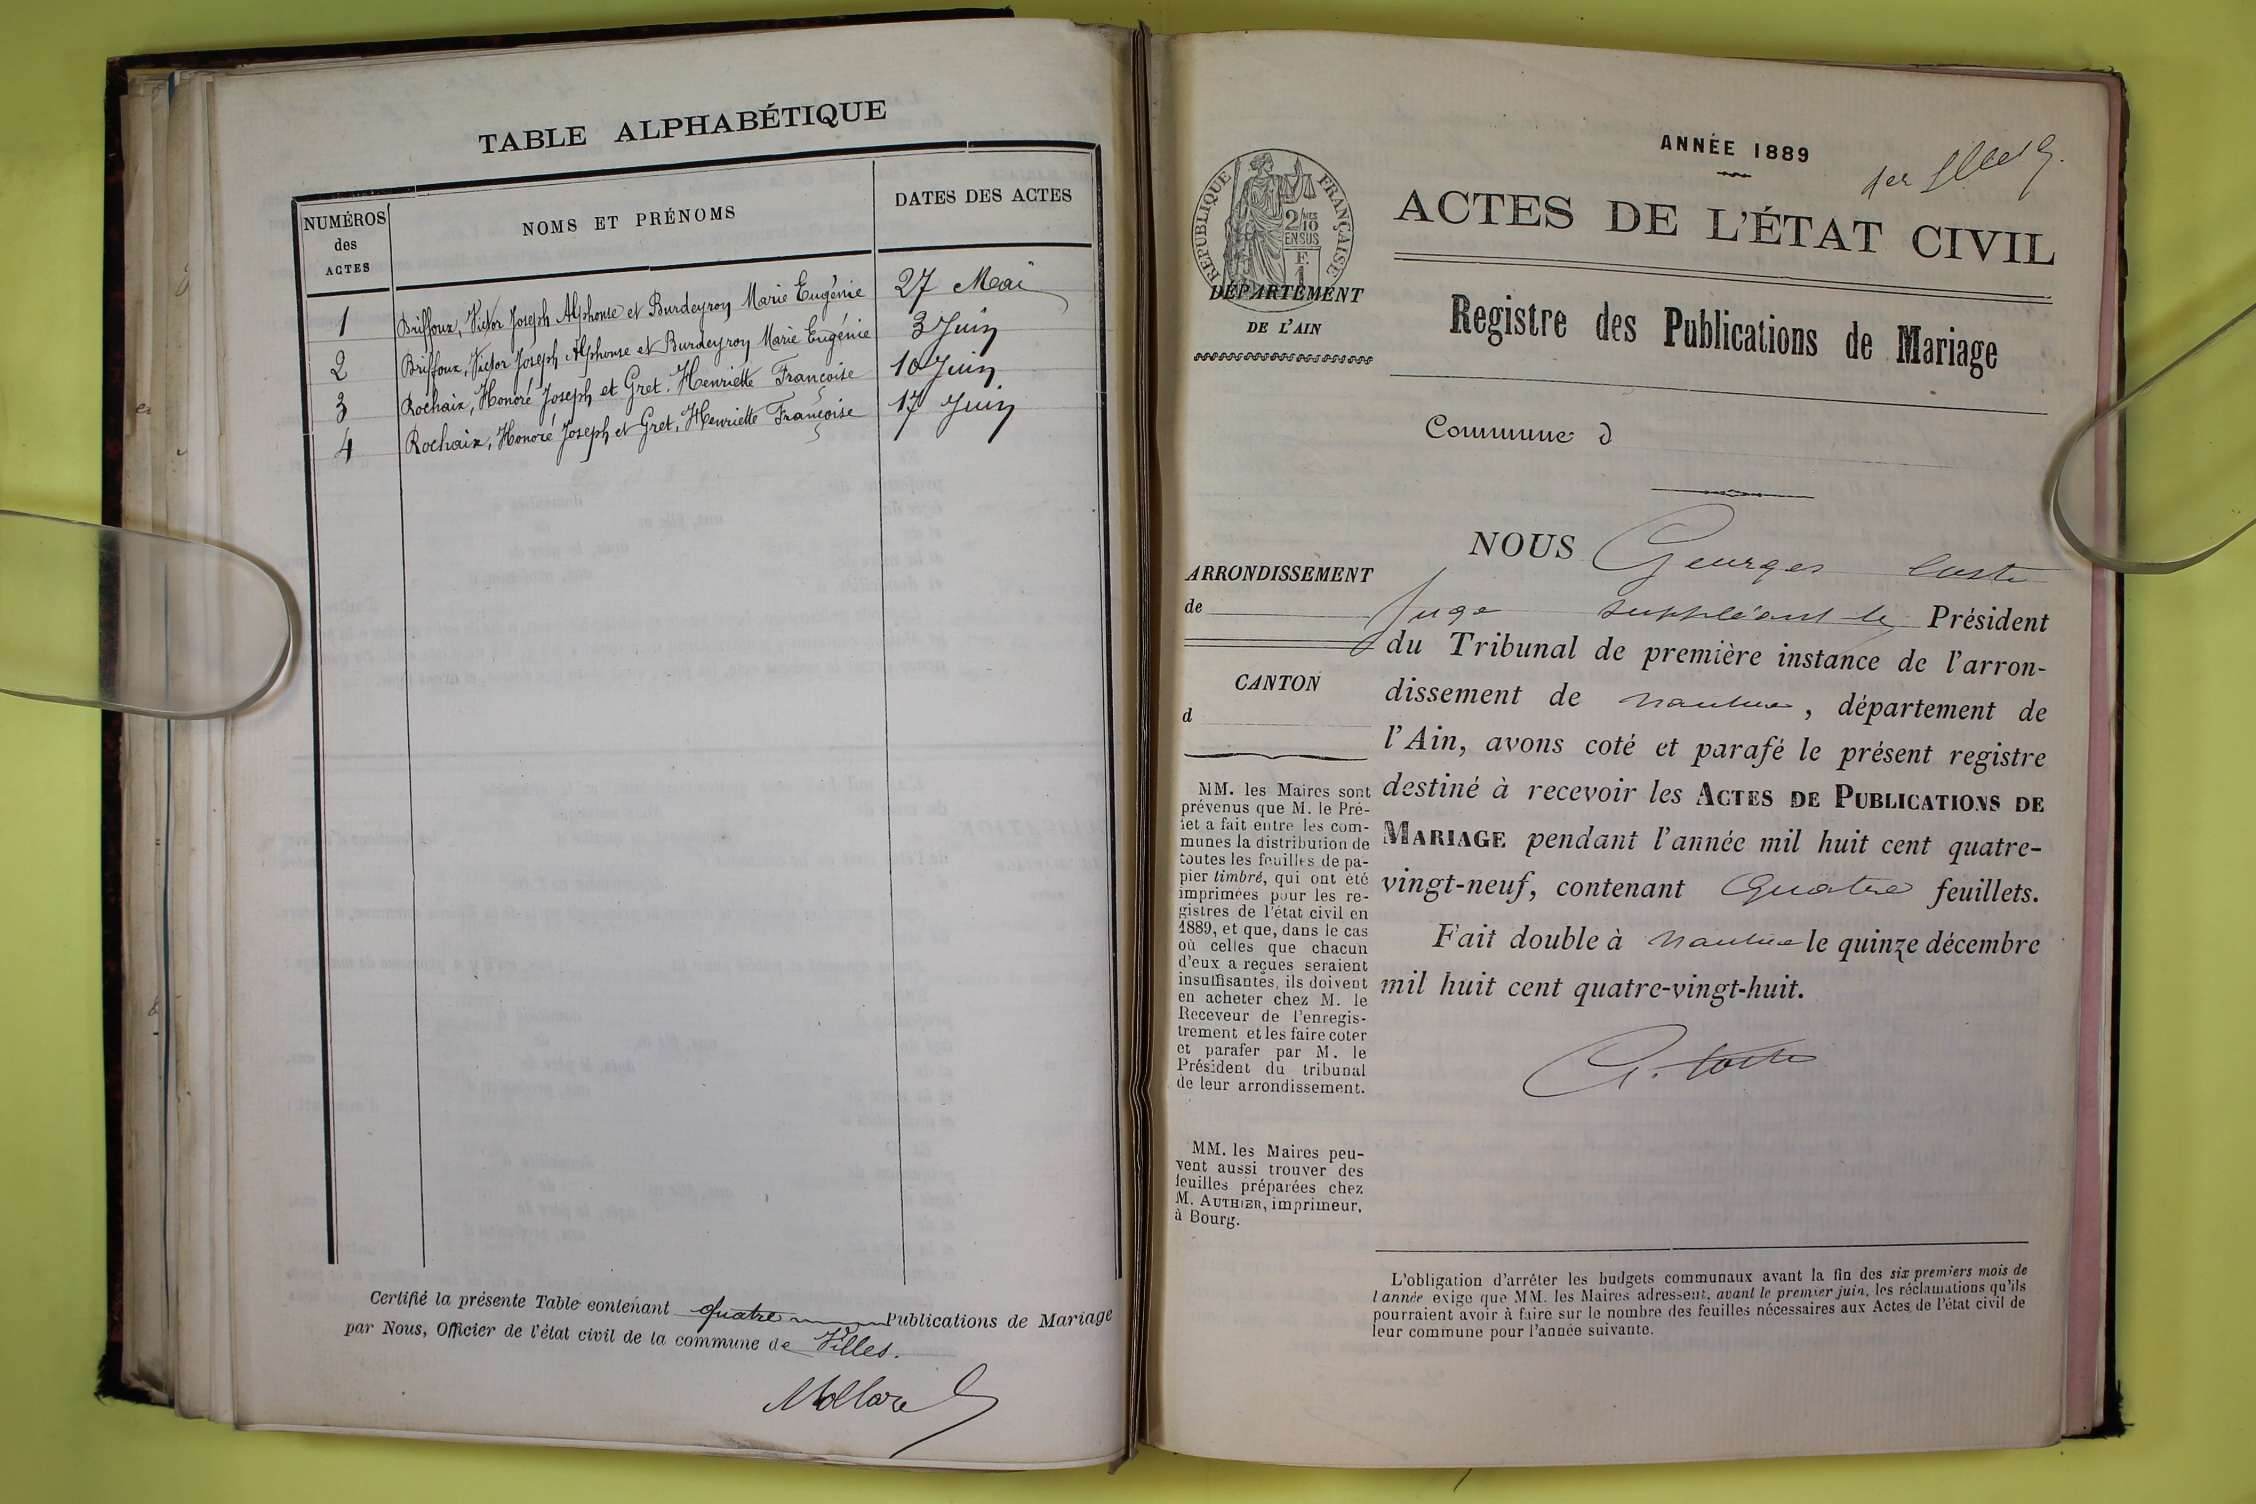 TABLE ALPHABÉTIQUE
NUMÉROS
des
ACTES
NOMS ET PRÉNOMS
DATES DES ACTES
1 Briffoux, Victor Joseph Alphonse et Burdeyron Marie Eugénie 27 Mai
2 Briffoux, Victor Joseph Alphonse et Burdeyron Marie Eugénie 3 Juin
3 Rochaix, Honoré Joseph et Gret, Henriette Françoise 10 Juin
4 Rochaix, Honoré Joseph et Gret, Henriette Françoise 17 Juin
Certifié la présente Table contenant quatre Publications de Mariage
par Nous, Officier de l'état civil de la commune de Villes.
ANNÉE 1889
1er
RÉPUBLIQUE FRANÇAISE
2/10
EN SUS
F.
1
ACTES DE L'ÉTAT CIVIL
DÉPARTEMENT
DE L'AIN
Registre des Publications de Mariage
Commune d
ARRONDISSEMENT
de
CANTON
d
MM. les Maires sont
prévenus que M. le Pré-
fet a fait entre les com-
munes la distribution de
toutes les feuilles de pa-
pier timbré, qui ont été
imprimées pour les re-
gistres de l'état civil en
1889, et que, dans le cas
où celles que chacun
d'eux a reçues seraient
insuffisantes, ils doivent
en acheter chez M. le
Receveur de l'enregis-
trement et les faire coter
et parafer par M. le
Président du tribunal
de leur arrondissement.
MM. les Maires peu-
vent aussi trouver des
feuilles préparées chez
M. AUTHIER, imprimeur,
à Bourg.
NOUS Georges Coste
Juge suppléant le Président
du Tribunal de première instance de l'arron-
dissement de Nantua, département de
l'Ain, avons coté et parafé le présent registre
destiné à recevoir les ACTES DE PUBLICATIONS DE
MARIAGE pendant l'année mil huit cent quatre-
vingt-neuf, contenant Quatre feuillets.
Fait double à Nantua le quinze décembre
mil huit cent quatre-vingt-huit.
G. Coste
L'obligation d'arrêter les budgets communaux avant la fin des six premiers mois de
l'année exige que MM. les Maires adressent, avant le premier juin, les réclamations qu'ils
pourraient avoir à faire sur le nombre des feuilles nécessaires aux Actes de l'état civil de
leur commune pour l'année suivante.